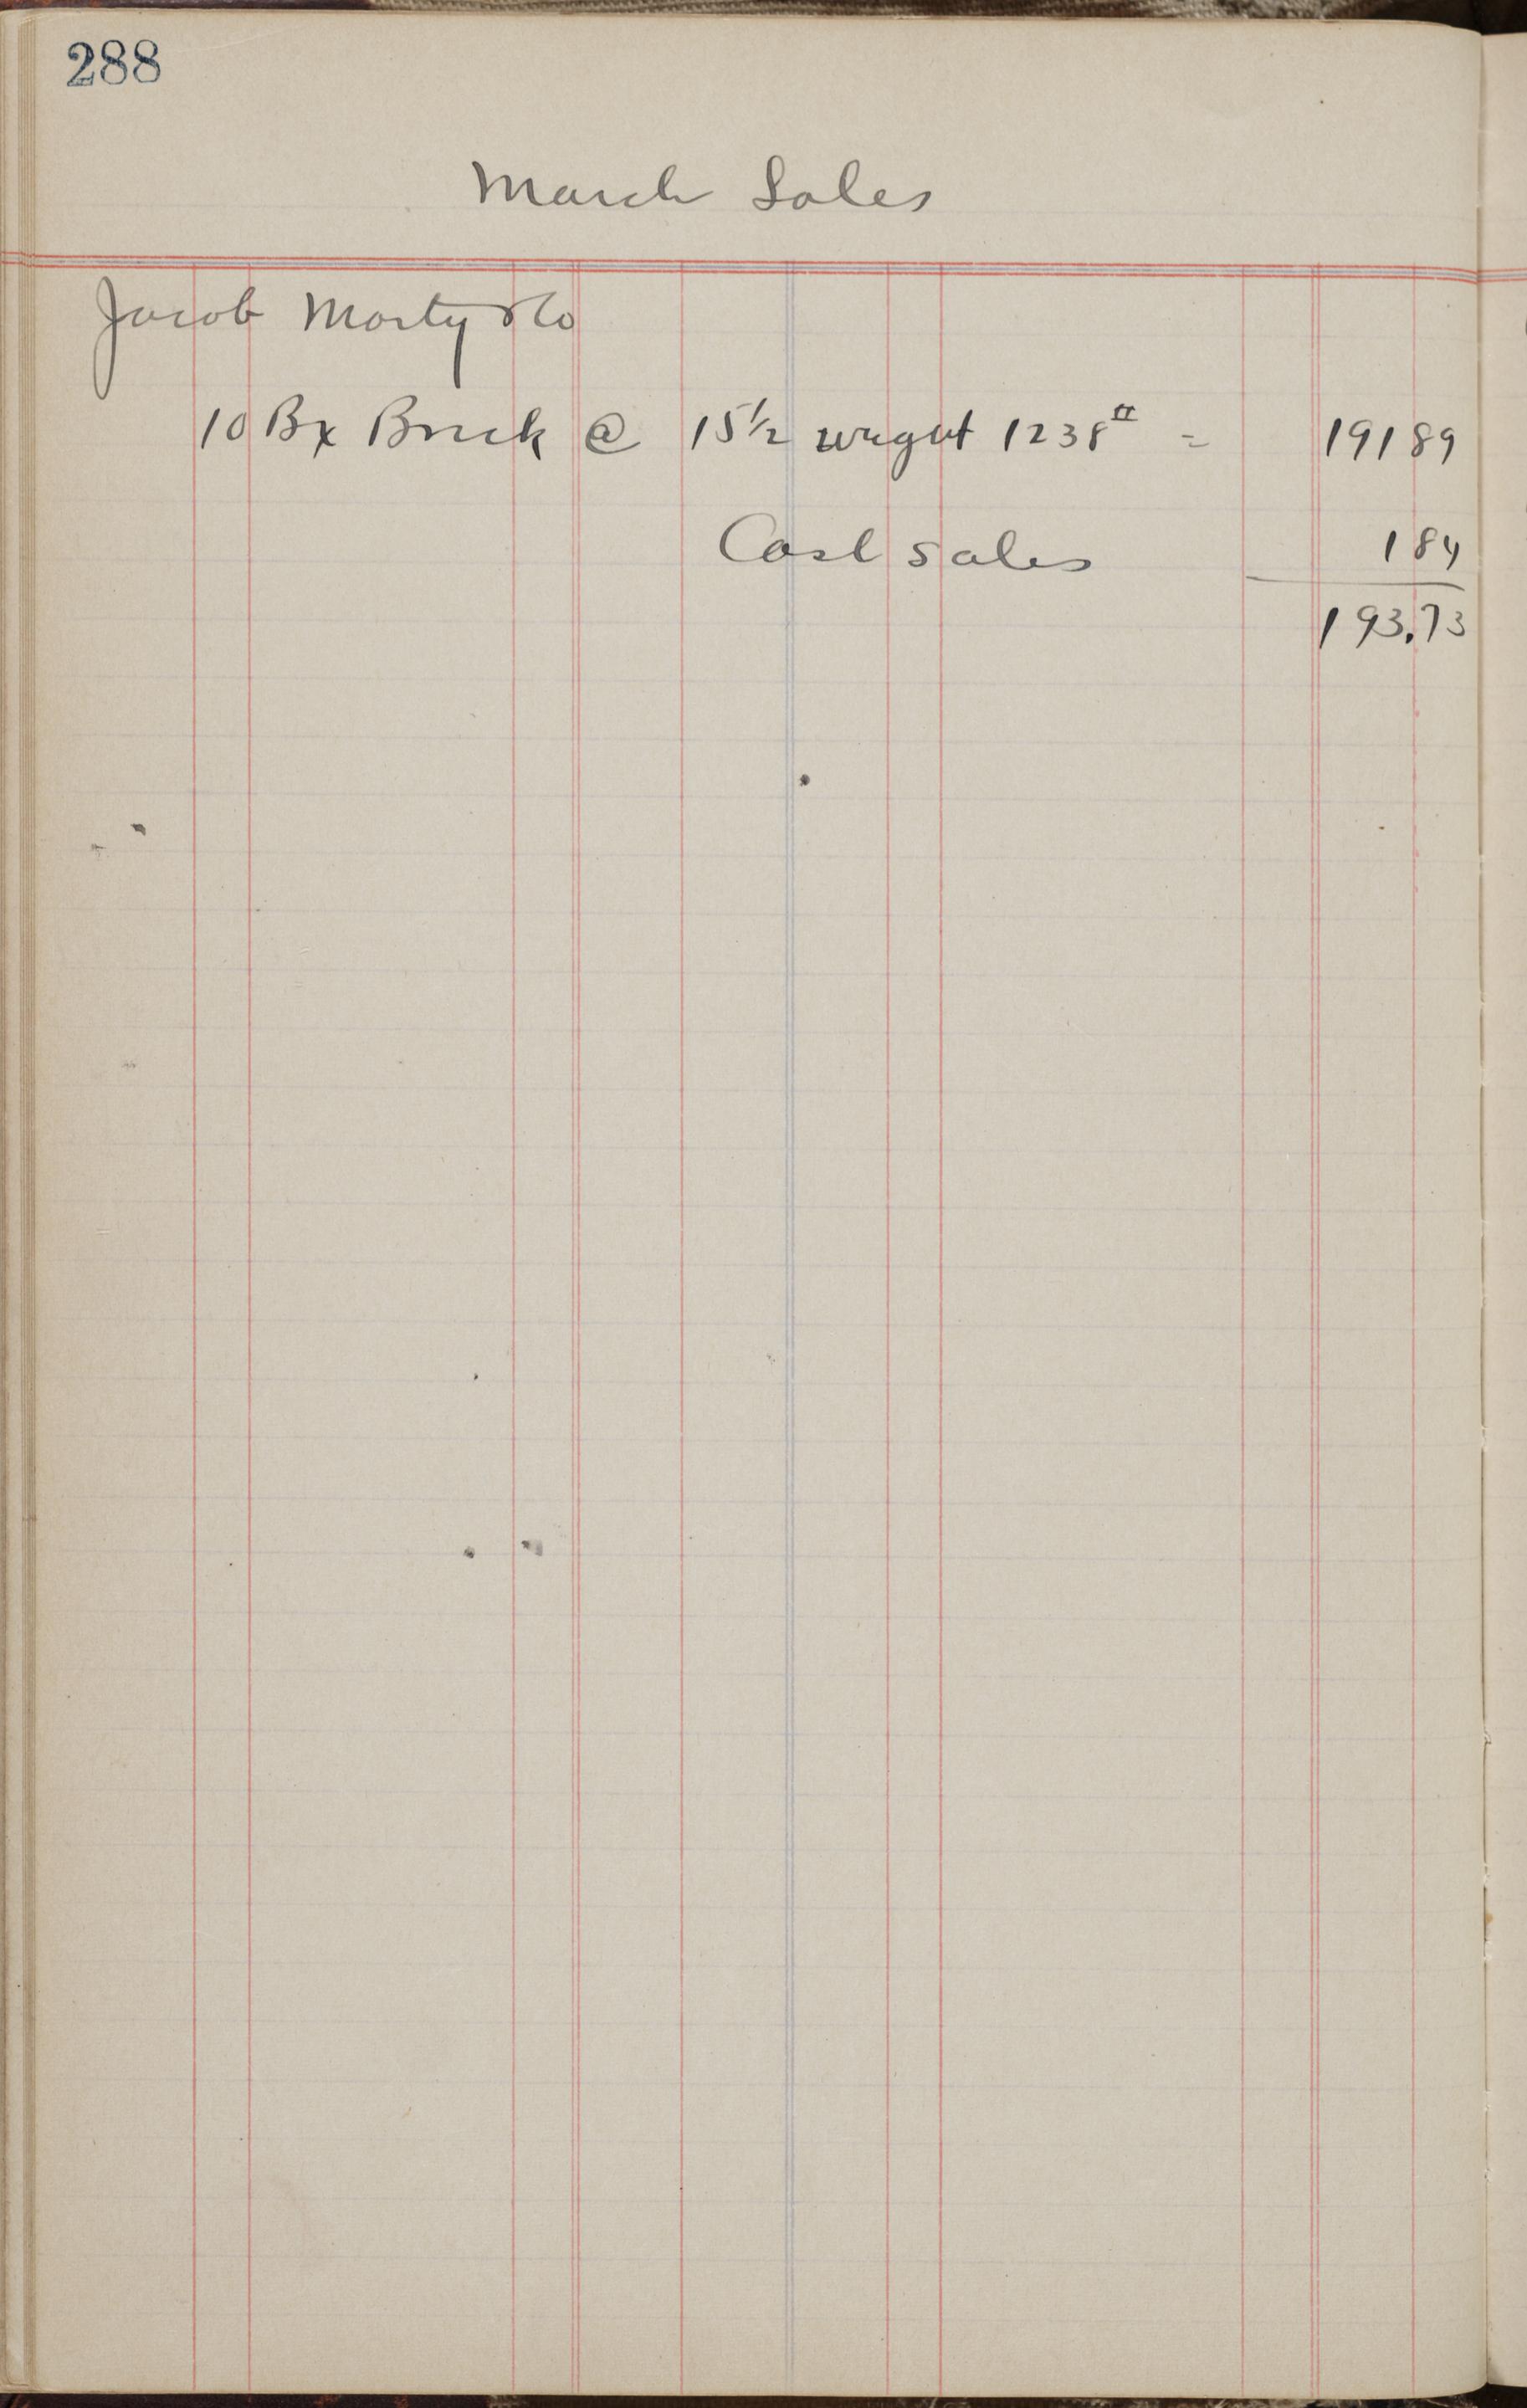 288
March Sales
Jacob Marty & Co
10 Bx Brick @ 15½ weight 1238# = 191 89
Cash Sales 1 84
193.73